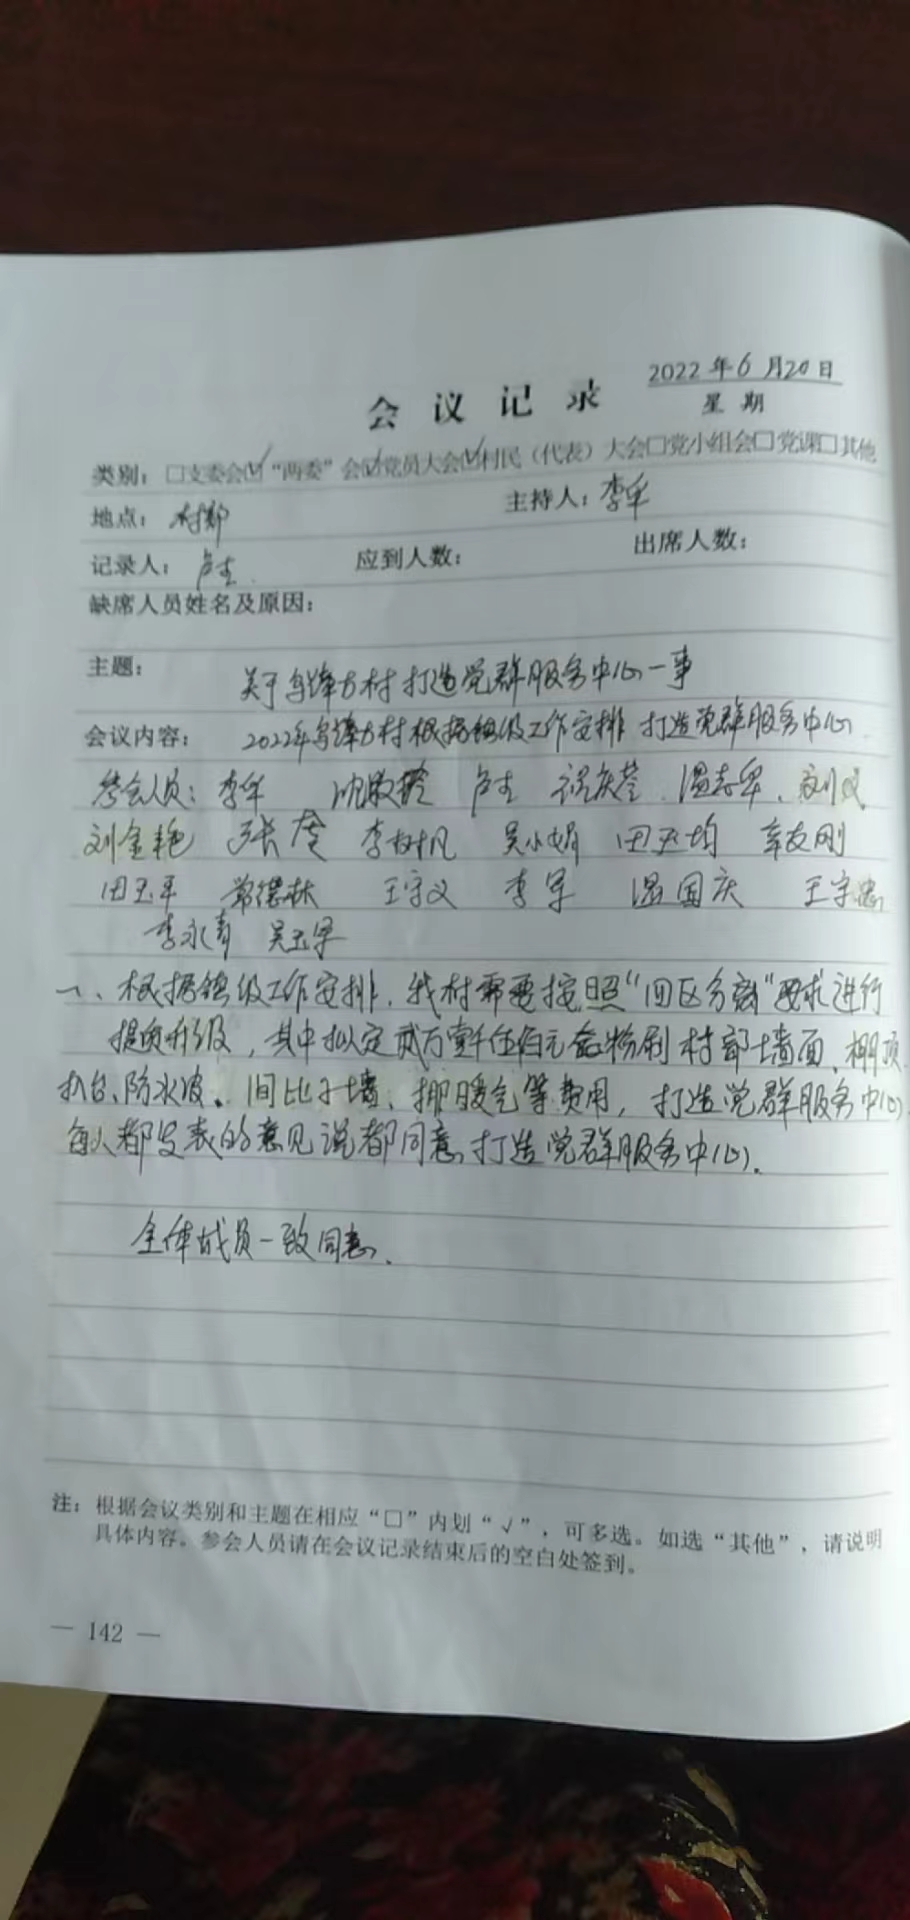 2022年6月20日
会议记录
星期
类别：□支委会☑“两委”会☑党员大会☑村民（代表）大会□党小组会□党课□其他
地点：村部
主持人：李军
记录人：卢志
应到人数：
出席人数：
缺席人员姓名及原因：
主题：
关于 村打造党群服务中心一事
会议内容：
2022年 村根据镇级工作安排 打造党群服务中心
参会人员：李军 沈敏 卢志 温志军、刘义
刘金艳 张 李树凡 吴小娟 田玉均 辛友刚
田玉平 常德林 王守义 李军 温国庆 王守忠
李永青 吴玉军
一、根据镇级工作安排，我村需要按照“四区分离”要求进行
提质升级，其中拟定贰万壹仟伍佰元 粉刷村部墙面、棚顶
扒台、防水 。间比子墙、挪暖气等费用，打造党群服务中心
每人都发表的意见说都同意打造党群服务中心。
全体成员一致同意、
注：根据会议类别和主题在相应“□”内划“√”，可多选。如选“其他”，请说明
具体内容。参会人员请在会议记录结束后的空白处签到。
— 142 —